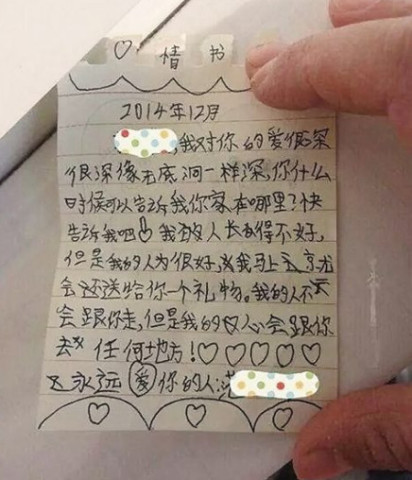 ♡情书
2014年12月
,我对你的爱很深
很深像无底洞一样深,你什么
时候可以告诉我你家在哪里?快
告诉我吧!我人长得不好,
但是我的人为很好,我马上就
会还送给你一个礼物。我的人不
会跟你走,但是我的心会跟你
去任何地方!♡♡♡♡♡
永远爱你的人: